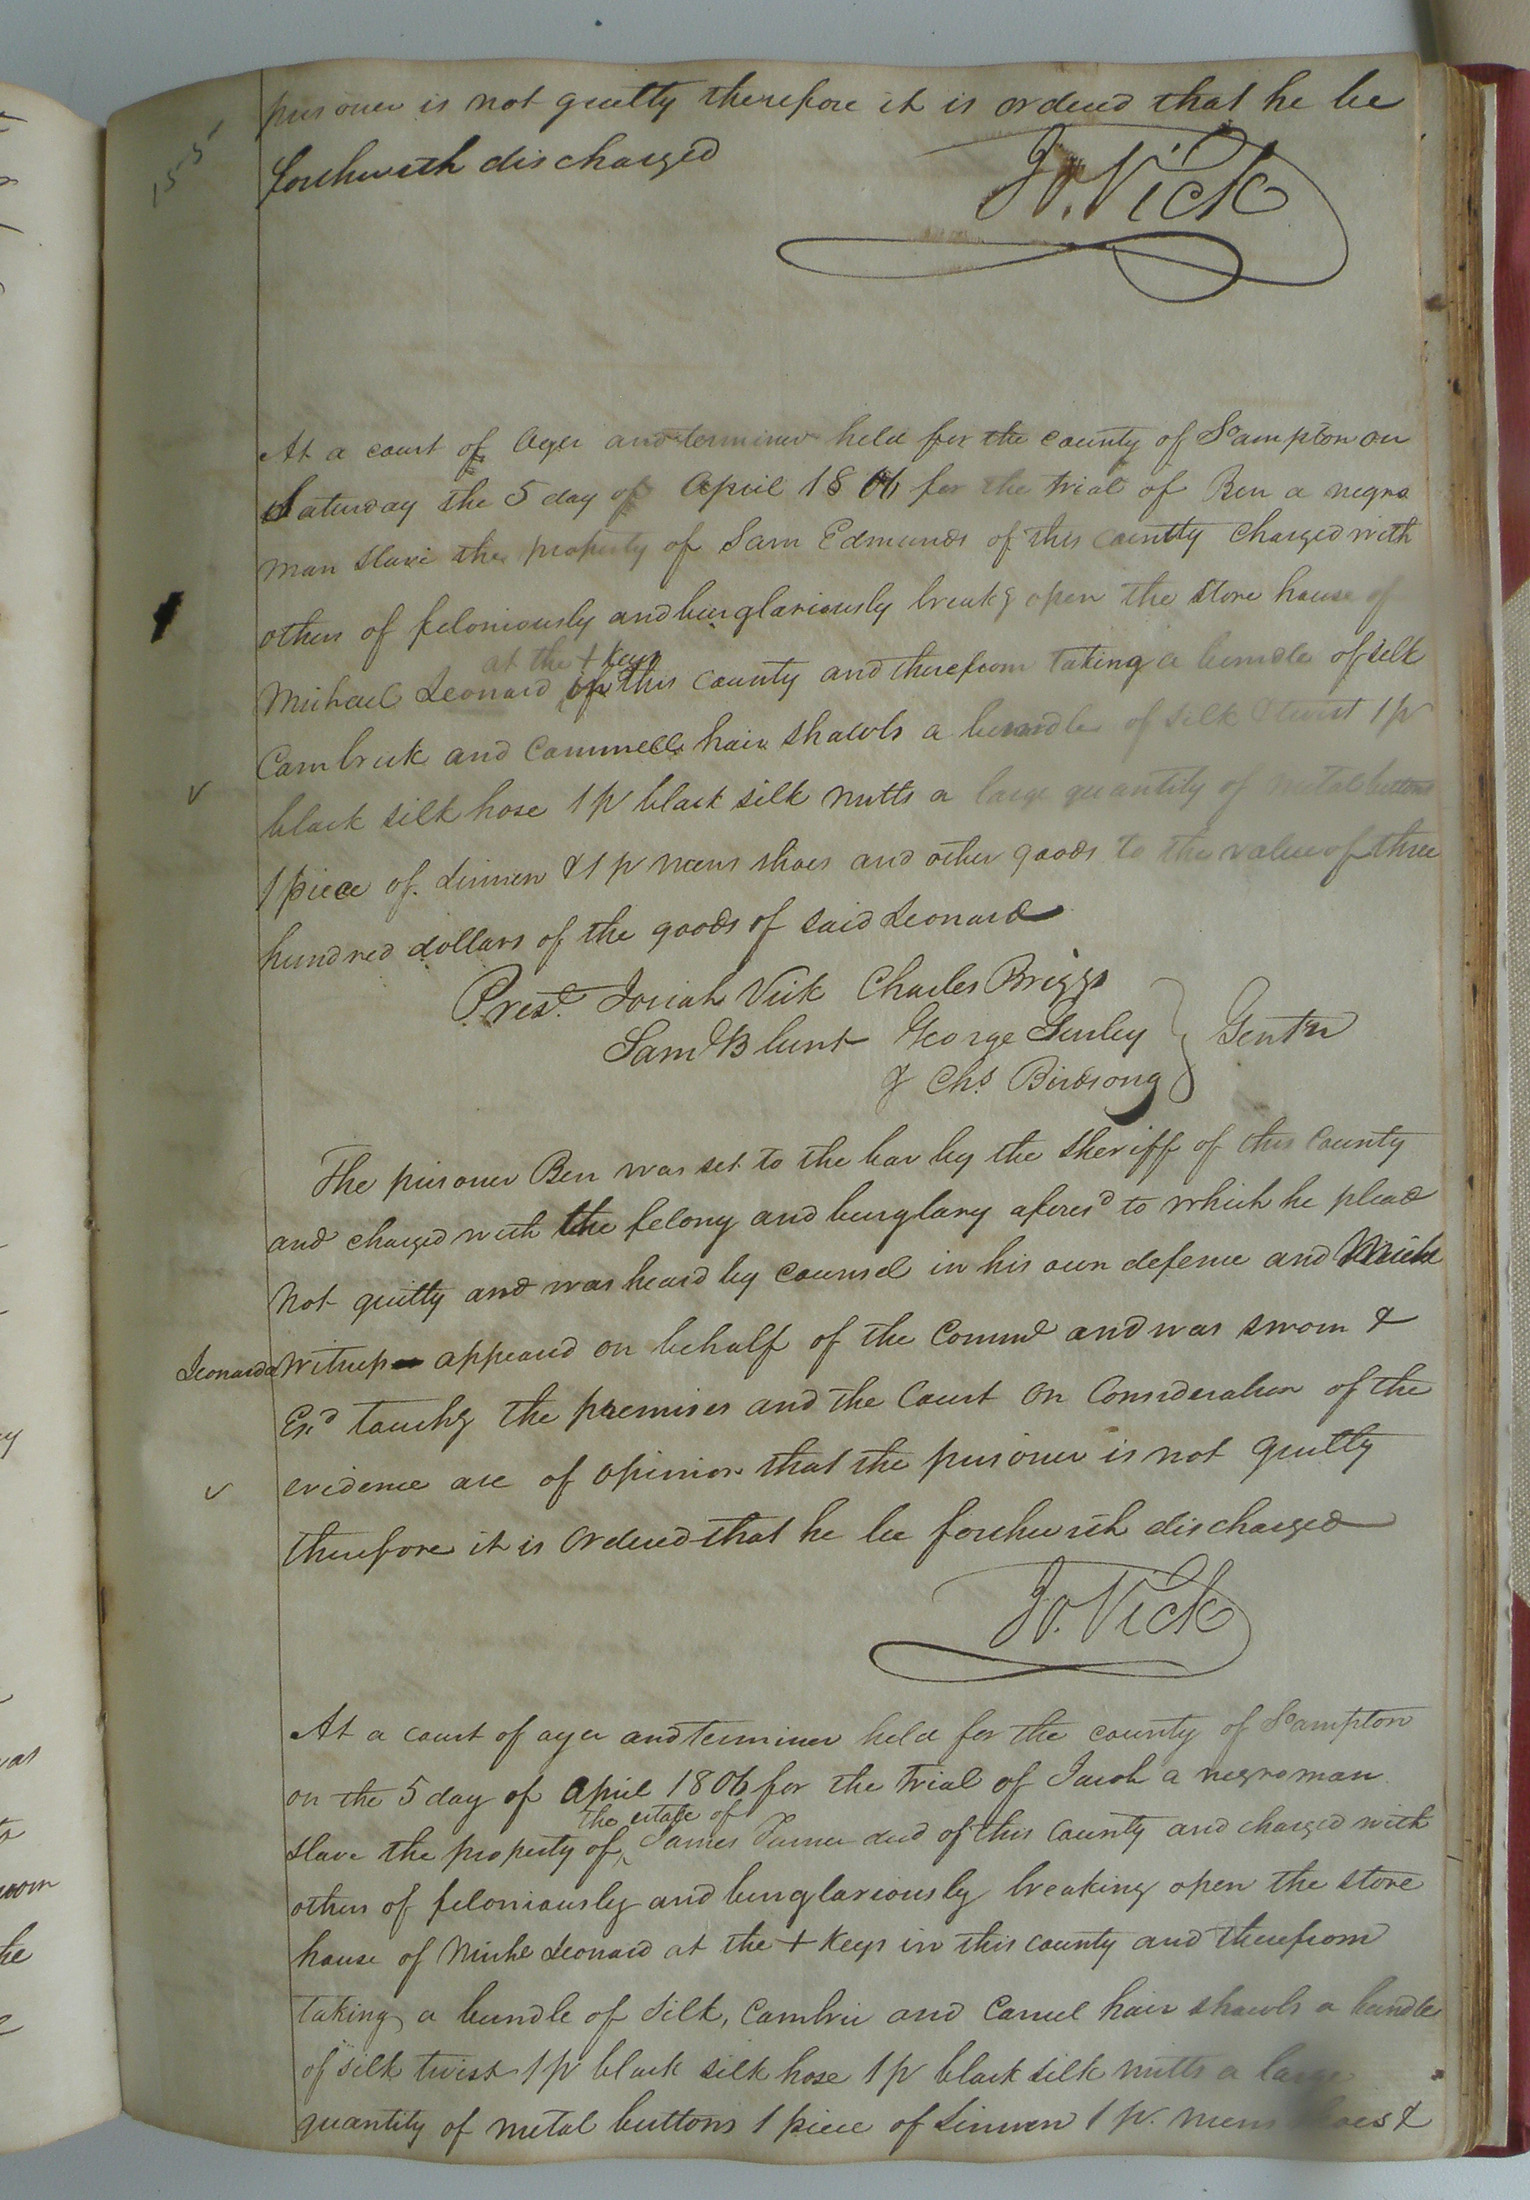 155
prisoner is not guilty therefore it is ordered that he be
forthwith discharged
Jo. Vick
At a court of Oyer and terminer held for the county of S°ampton on
Saturday the 5 day of April 1806 for the trial of Ben a negro
man slave the property of Sam Edmunds of this county charged with
others of feloniously and burglariously breakg open the store house of
at the + Keys
Michael Leonard in this county and therefrom taking a bundle of silk
Cambrick and Cammell hair shawls a bundle of silk twist 1 pr
black silk hose 1 pr black silk mitts a large quantity of metal buttons
1 piece of Linnen & 1 pr mens shoes and other goods to the value of three
hundred dollars of the goods of said Leonard
Prest. Josiah Vick Charles Briggs
Saml Blunt George Gurley Gentn
& Chs. Birdsong
The prisoner Ben was set to the bar by the Sheriff of this County
and charged with the felony and burglary aforesd to which he plead
Not guilty and was heard by Counsel in his own defence and Michl
Leonard a Witness appeard on behalf of the Commd and was sworn &
Exd touchg the premises and the Court on Consideration of the
evidence are of opinion that the prisoner is not guilty
therefore it is Ordered that he be forthwith discharged
Jo. Vick
At a court of oyer and terminer held for the county of S°ampton
on the 5 day of April 1806 for the trial of Jacob a negro man
the estate of
slave the property of James Turner decd of this County and charged with
others of feloniously and burglariously breaking open the store
house of Michl Leonard at the + Keys in this county and therefrom
taking a bundle of Silk, Cambric and Camel hair shawls a bundle
of silk twist 1 pr black silk hose 1 pr black silk mitts a large
quantity of metal buttons 1 piece of Linnen 1 pr. mens shoes &